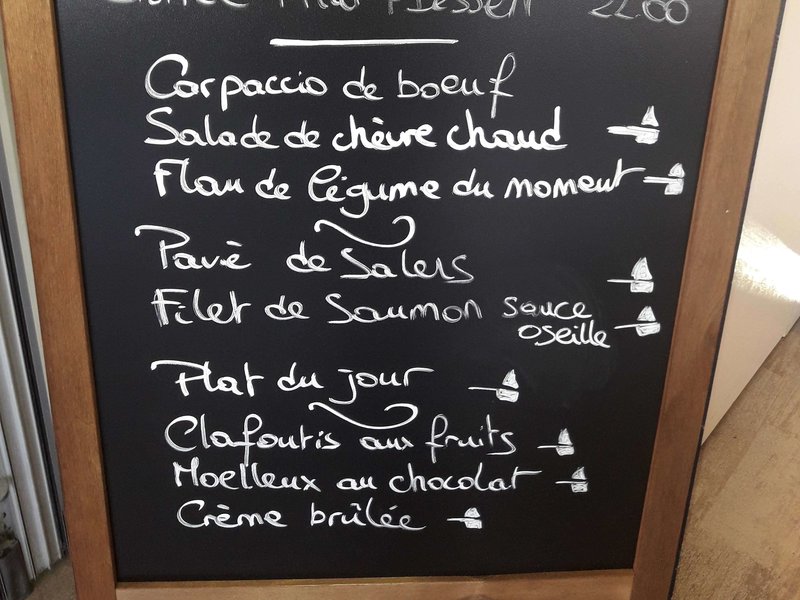 Entrée Plat Dessert 22.00
Carpaccio de boeuf
Salade de chèvre chaud
Flan de légume du moment
Pavè de Salers
Filet de Saumon sauce
oseille
Plat du jour
Clafoutis aux fruits
Moelleux au chocolat
Crème brûlée